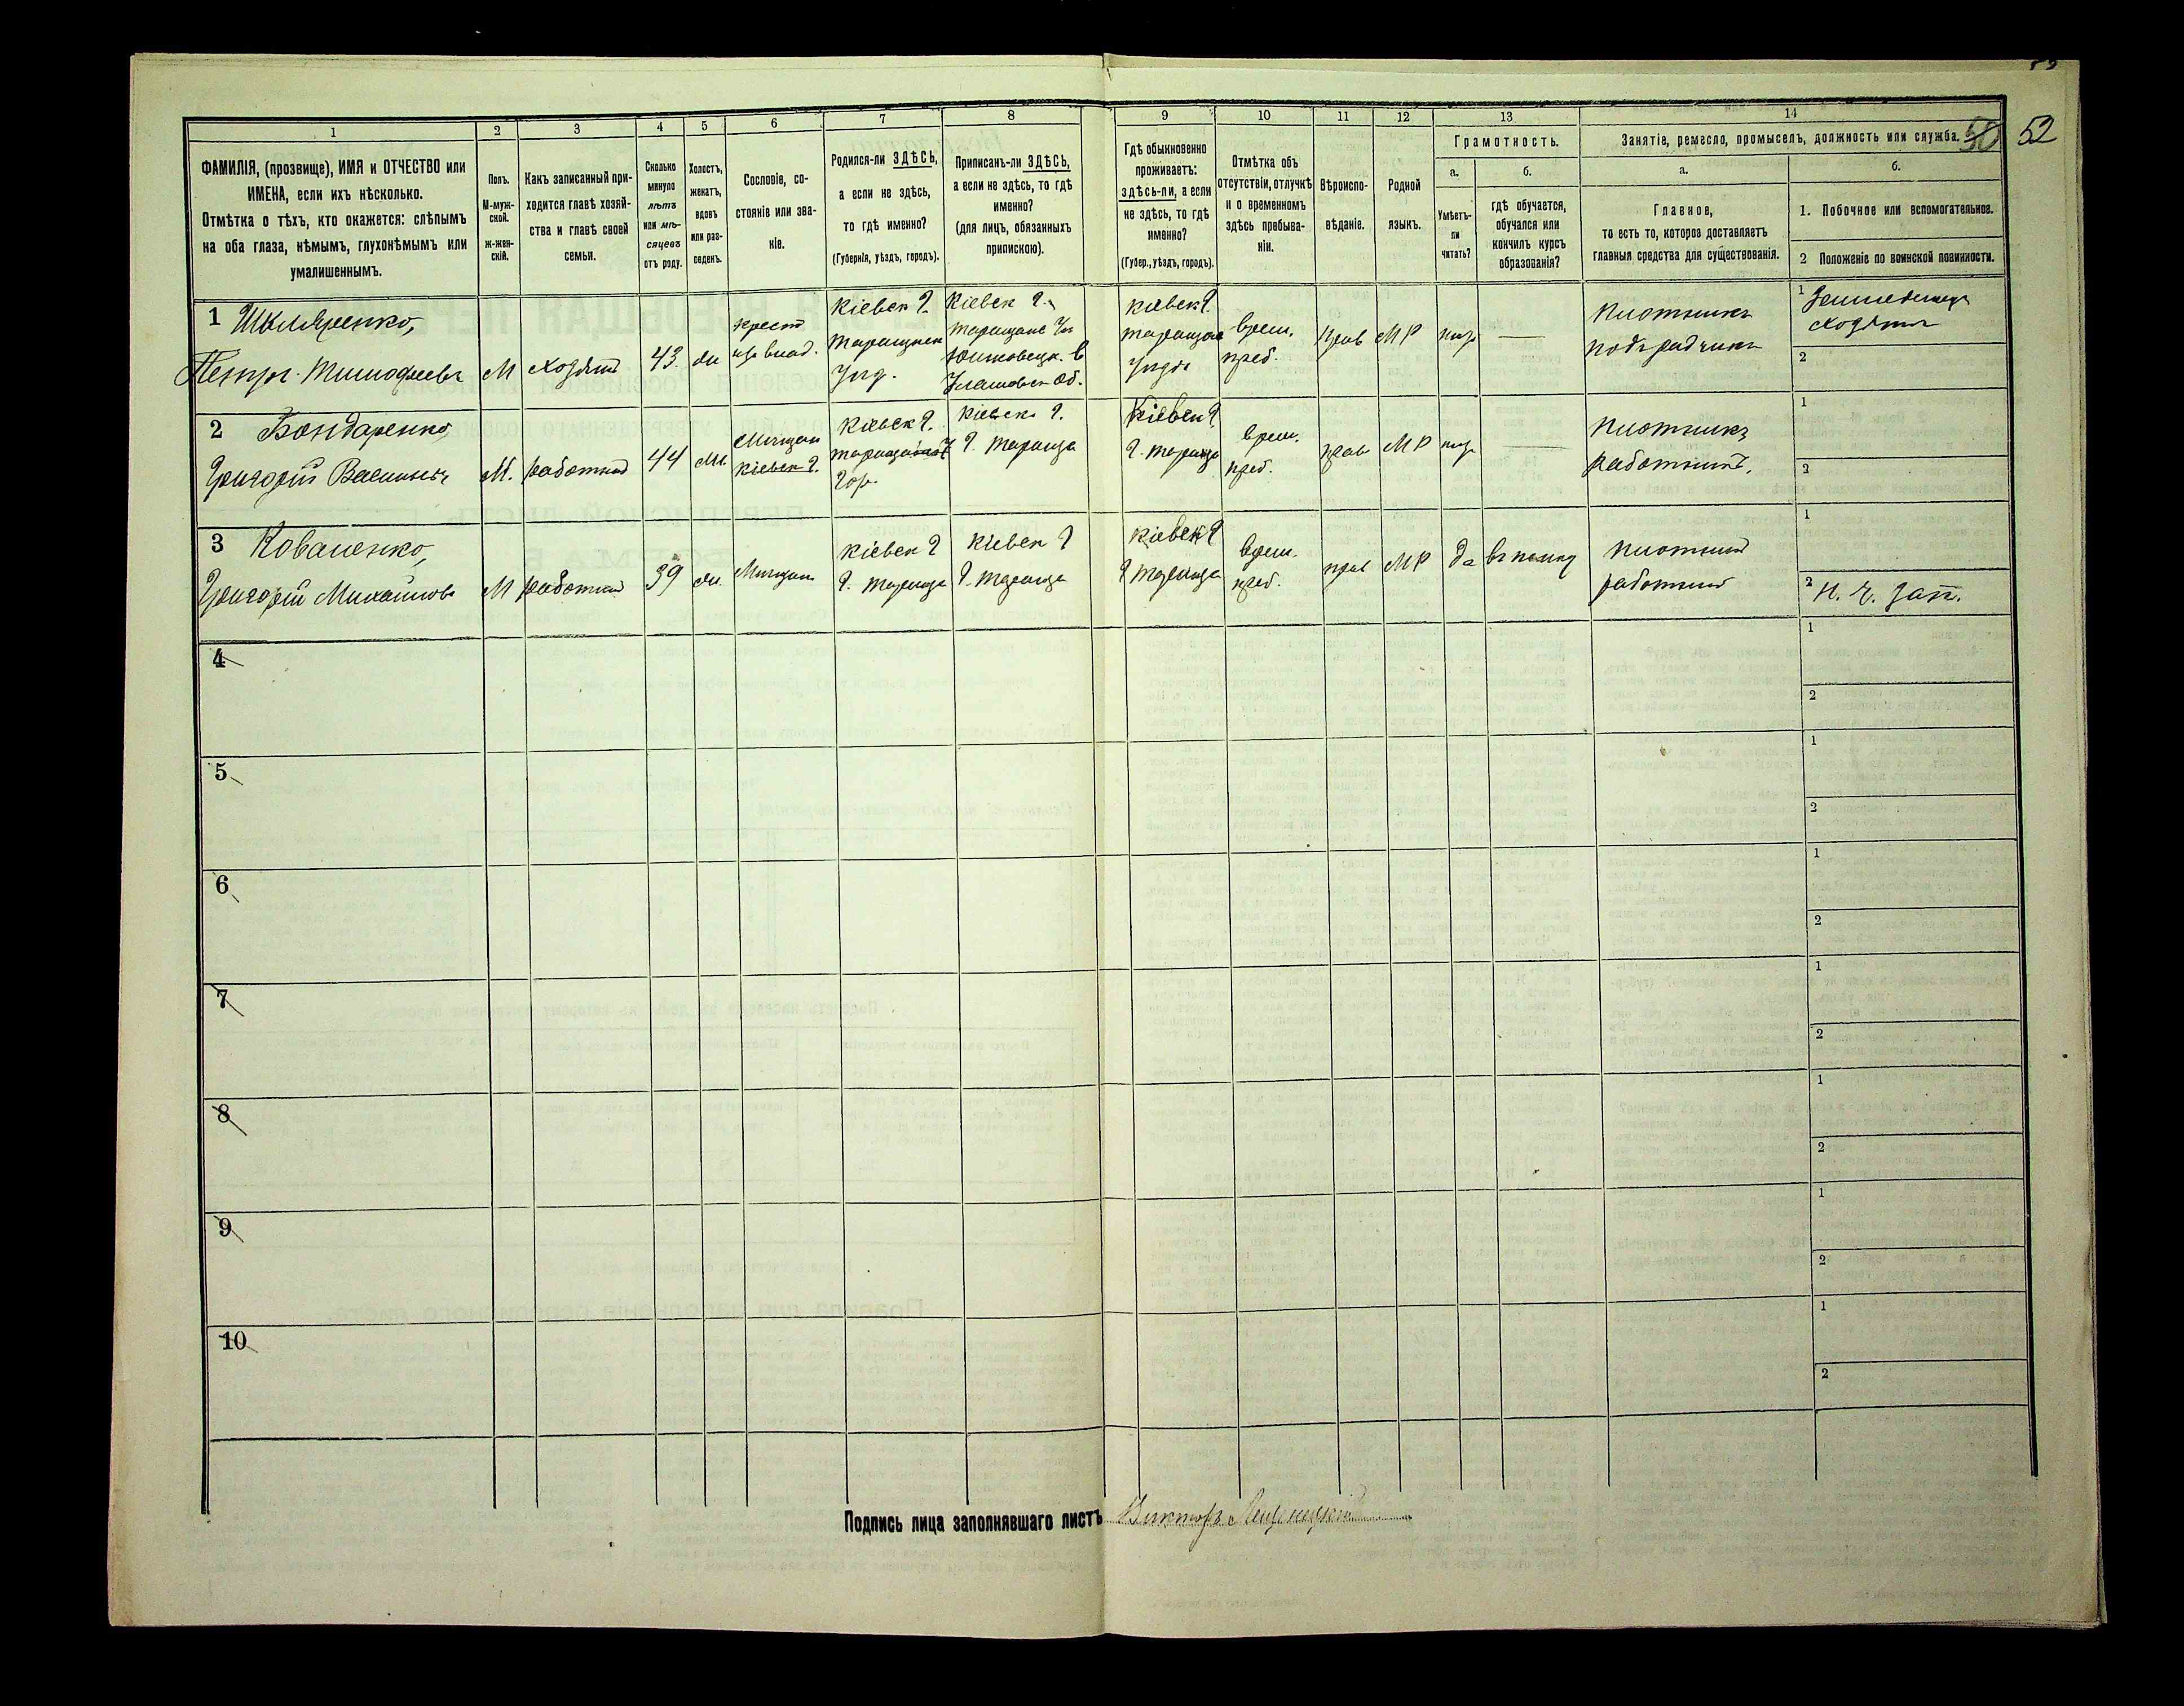 52
50
1
2
3
4
5
6
7
8
9
10
11
12
13
14
ФАМИЛІЯ, (прозвище), ИМЯ и ОТЧЕСТВО или
ИМЕНА, если ихъ нѣсколько.
Отмѣтка о тѣхъ, кто окажется: слѣпымъ
на оба глаза, нѣмымъ, глухонѣмымъ или
умалишеннымъ.
Полъ.
М-муж-
ской.
ж-жен-
скій.
Какъ записанный при-
ходится главѣ хозяй-
ства и главѣ своей
семьи.
Сколько
минуло
лѣтъ
или мѣ-
сяцевъ
отъ роду.
Холостъ,
женатъ,
вдовъ
или раз-
веденъ.
Сословіе, со-
стояніе или зва-
ніе.
Родился-ли ЗДѢСЬ,
а если не здѣсь,
то гдѣ именно?
(Губернія, уѣздъ, городъ).
Приписанъ-ли ЗДѢСЬ,
а если не здѣсь, то гдѣ
именно?
(для лицъ, обязанныхъ
припискою).
Гдѣ обыкновенно
проживаетъ:
здѣсь-ли, а если
не здѣсь, то гдѣ
именно?
(Губер., уѣздъ, городъ).
Отмѣтка объ
отсутствіи, отлучкѣ
и о временномъ
здѣсь пребыва-
ніи.
Вѣроиспо-
вѣданіе.
Родной
языкъ.
Грамотность.
а.
Умѣетъ-
ли
читать?
б.
гдѣ обучается,
обучался или
кончилъ курсъ
образованія?
Занятіе, ремесло, промыселъ, должность или служба.
а.
Главное,
то есть то, которое доставляетъ
главныя средства для существованія.
б.
1. Побочное или вспомогательное.
2 Положеніе по воинской повинности.
1 Шкляренко,
Петръ Тимофеевъ
М
хозяинъ
43
жен
крест
изъ влад.
Кіевск г.
Таращанск
Уѣзд.
Кіевск г.
Таращанс Уѣ
Кіевск г.
Таращанс
Уѣзда
врем.
преб.
прав
МР
нѣтъ
—
Плотникъ
подрядчикъ
1 Земледѣлецъ
хозяинъ
2
2 Бондаренко
Григорій Васильевъ
М.
работникъ
44
жен.
Мѣщан
Кіевск г.
Кіевск г.
гор.
Кіевск г.
г. Тараща
Кіевск г
г. Тараща
врем.
преб.
прав
МР
нѣтъ
—
Плотникъ
работникъ.
1
2
3 Коваленко,
Григорій Михайловъ
М
работникъ
39
жен
Мѣщан
Кіевск г
г. Тараща
Кіевск г
г. Тараща
Кіевск г
г Тараща
врем.
преб.
прав
МР
да
въ полку
плотникъ
работникъ
1
2 Н. Ч. Зап.
4
1
2
5
1
2
6
1
2
7
1
2
8
1
2
9
1
2
10
1
2
Подпись лица заполнявшаго листъ Викторъ